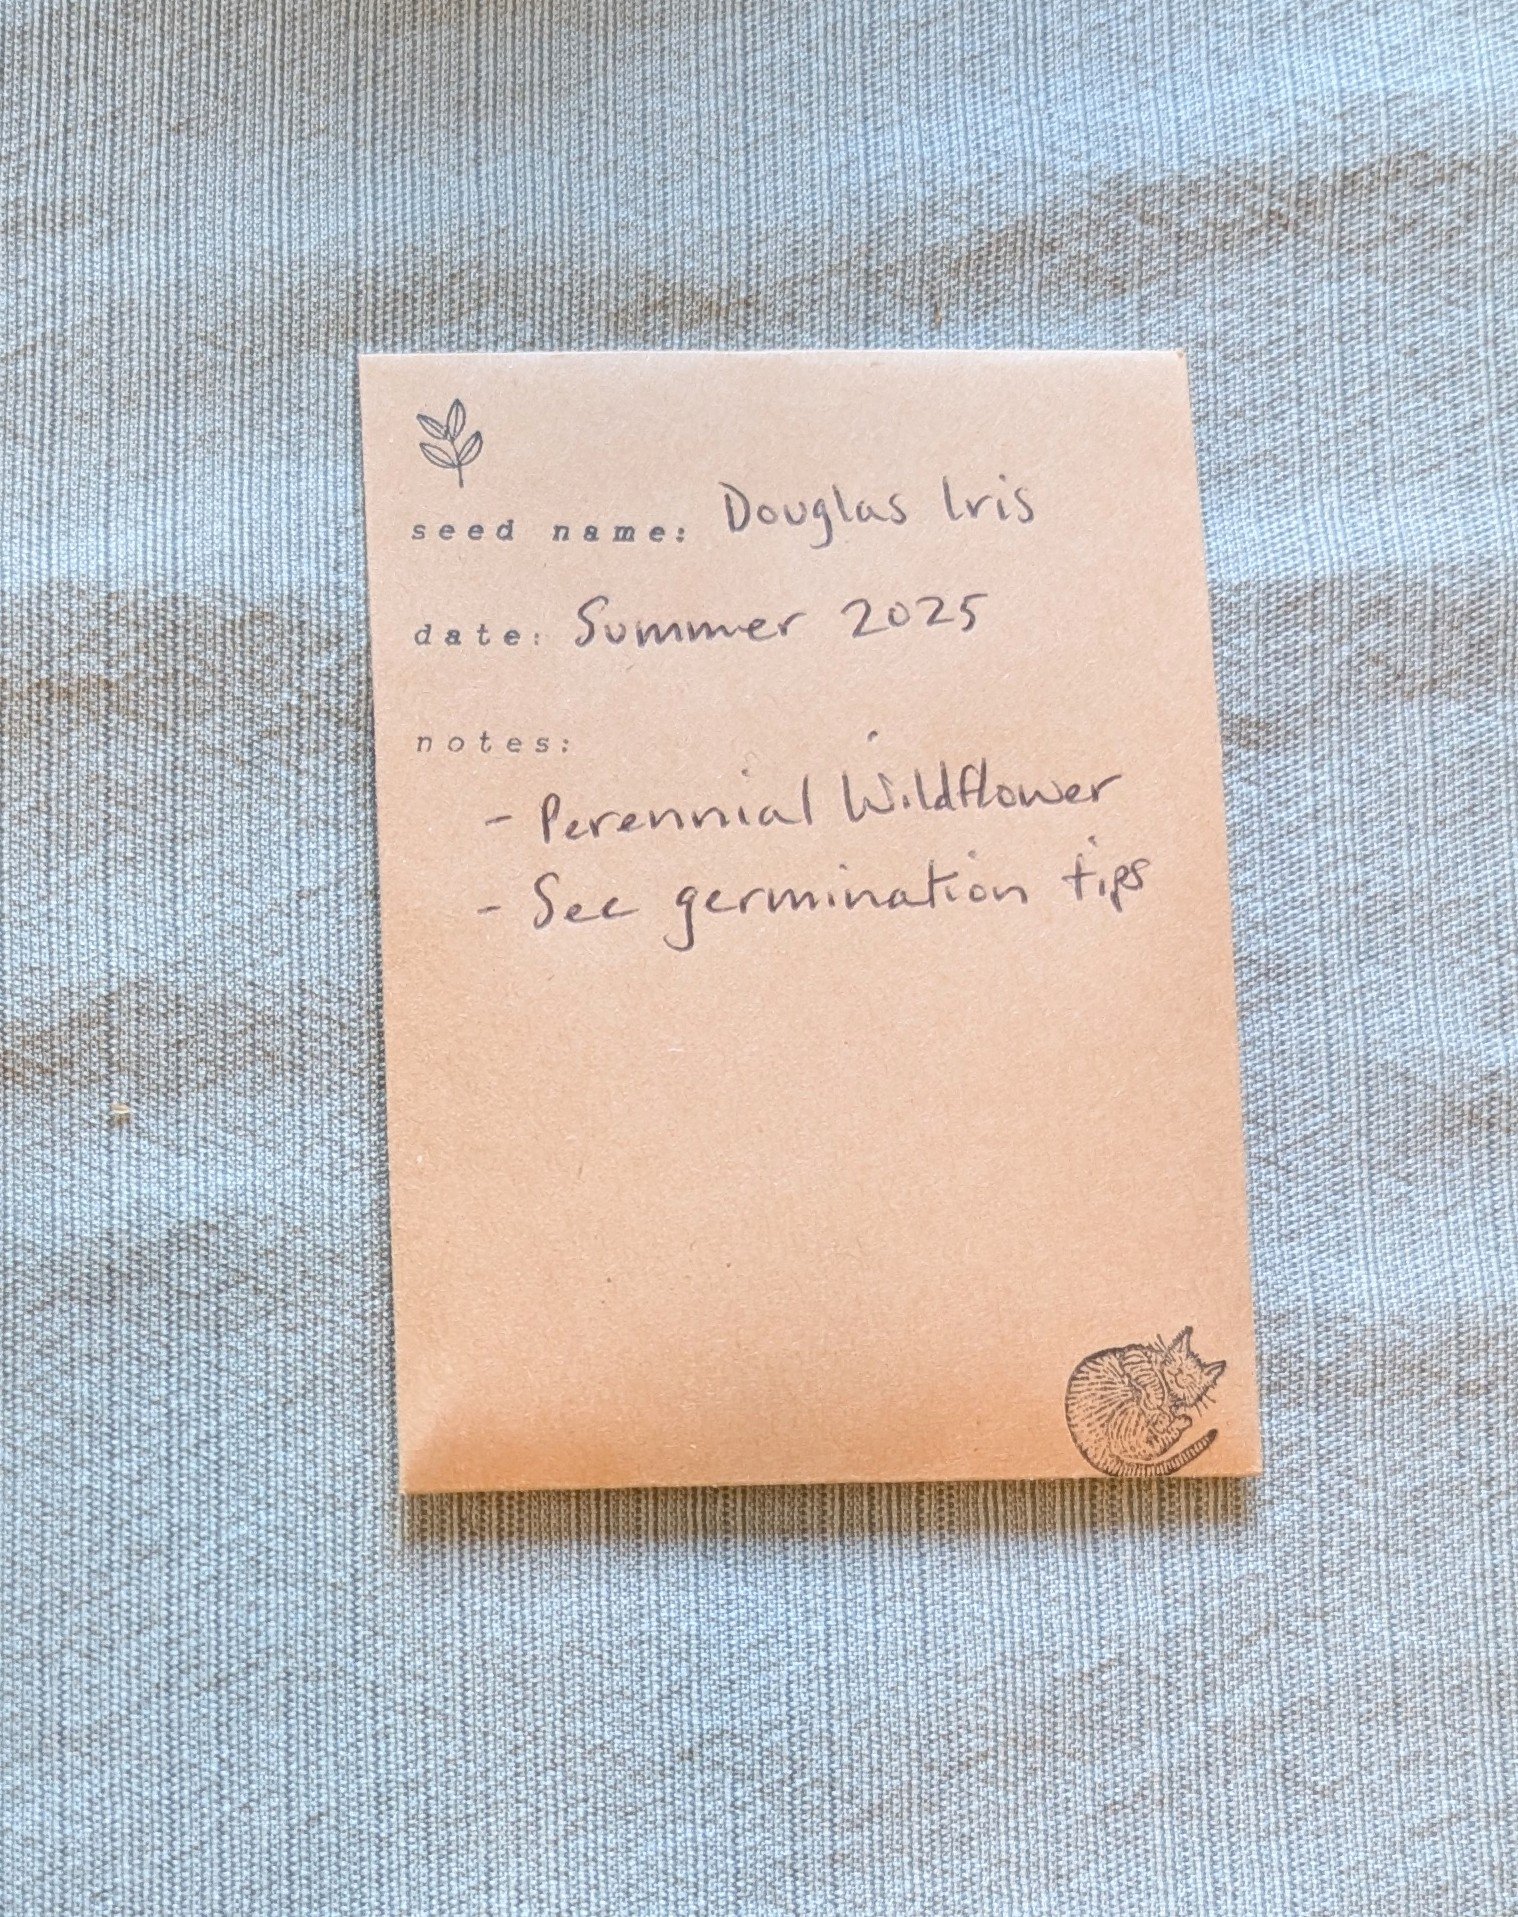 seed name: Douglas Iris
date: Summer 2025
notes:
- Perennial Wildflower
- See germination tips